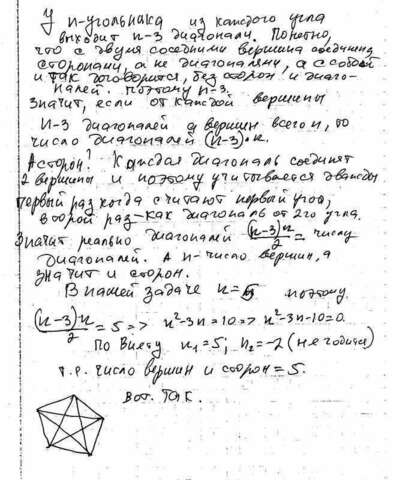 У n-угольника из каждого угла
выходит n-3 диагонали. Понятно,
что с двумя соседними вершина соединена
сторонами, а не диагоналями, а с собой
и так договорится, без сторон и диаго-
налей. поэтому n-3.
Значит, если от каждой вершины
n-3 диагоналей а вершин всего n, то
число диагоналей (n-3)·n.
А сторон? Каждая диагональ соединяет
2 вершины и поэтому учитывается дважды
первый раз когда считают первый угол,
второй раз - как диагональ от 2го угла.
Значит реально диагоналей (n-3)n/2 = числу
диагоналей. А n-число вершин, а
значит и сторон.
В нашей задаче n=5 поэтому
(n-3)n/2 = 5 => n²-3n=10 => n²-3n-10=0.
По Виету n₁=5; n₂=-2 (не годится)
т.е. число вершин и сторон = 5.
Вот. Так.